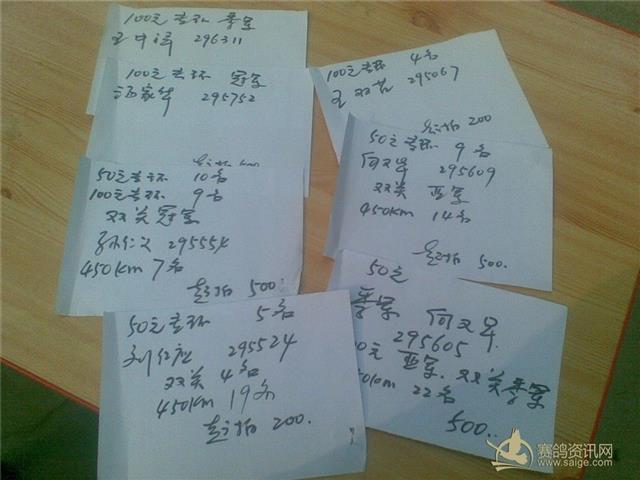 100元套环 季军
王中涛 296311
100元套环 冠军
汤家华 295752
50元套环 10名
100元套环 9名
双关冠军
孙仁义 29555
450km 7名
起拍 500
50元套环 5名
刘红 295524
双关 4名
450km 19名
起拍 200.
100元套环 4名
王双 295067
起拍 200
50元套环 9名
何文军 295609
双关 亚军
450km 14名
起拍 500.
50元
季军 何文军
295605
00元 亚军. 双关季军
50km 22名
500..
赛鸽资讯网
www.saige.com